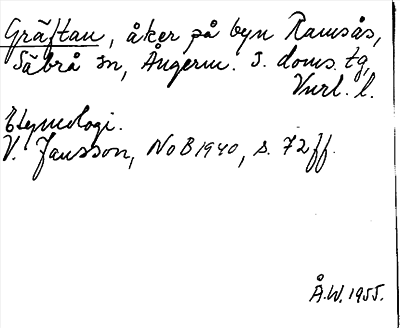 Gräftan, åker på byn Ramsås,
Säbrå sn, Ångerm. s. doms. tg,
Vnrl. l.
Etymologi.
V. Jansson, NoB 1940, s. 72 ff.
Å.W. 1955.